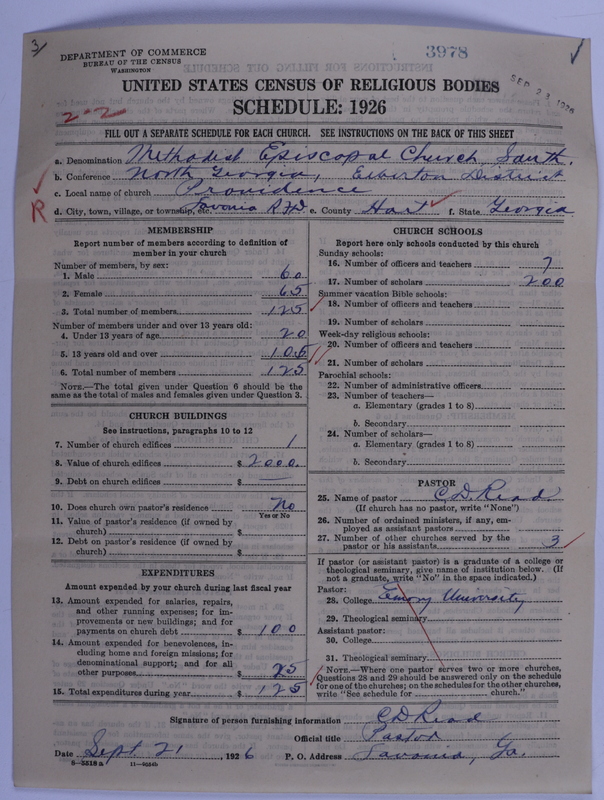 3/
3978
DEPARTMENT OF COMMERCE
BUREAU OF THE CENSUS
WASHINGTON
SEP 23 1926
UNITED STATES CENSUS OF RELIGIOUS BODIES
SCHEDULE: 1926
2-2
FILL OUT A SEPARATE SCHEDULE FOR EACH CHURCH. SEE INSTRUCTIONS ON THE BACK OF THIS SHEET
a. Denomination Methodist Episcopal Church, South.
b. Conference North Georgia, Elberton District
c. Local name of church Providence
R
d. City, town, village, or township, etc. Lavonia RFD e. County Hart f. State Georgia
MEMBERSHIP
Report number of members according to definition of
member in your church
Number of members, by sex:
1. Male 60
2. Female 65
3. Total number of members 125
Number of members under and over 13 years old:
4. Under 13 years of age 20
5. 13 years old and over 105
6. Total number of members 125
NOTE.—The total given under Question 6 should be the
same as the total of males and females given under Question 3.
CHURCH BUILDINGS
See instructions, paragraphs 10 to 12
7. Number of church edifices 1
8. Value of church edifices $ 2000.
9. Debt on church edifices $ —
10. Does church own pastor's residence No
Yes or No
11. Value of pastor's residence (if owned by
church) $
12. Debt on pastor's residence (if owned by
church) $
EXPENDITURES
Amount expended by your church during last fiscal year
13. Amount expended for salaries, repairs,
and other running expenses; for im-
provements or new buildings; and for
payments on church debt $ 100
14. Amount expended for benevolences, in-
cluding home and foreign missions; for
denominational support; and for all
other purposes $ 25
15. Total expenditures during year $ 125
CHURCH SCHOOLS
Report here only schools conducted by this church
Sunday schools:
16. Number of officers and teachers 7
17. Number of scholars 200
Summer vacation Bible schools:
18. Number of officers and teachers
19. Number of scholars
Week-day religious schools:
20. Number of officers and teachers
21. Number of scholars
Parochial schools:
22. Number of administrative officers
23. Number of teachers—
a. Elementary (grades 1 to 8)
b. Secondary
24. Number of scholars—
a. Elementary (grades 1 to 8)
b. Secondary
PASTOR
25. Name of pastor C. D. Read
(If church has no pastor, write "None")
26. Number of ordained ministers, if any, em-
ployed as assistant pastors
27. Number of other churches served by the
pastor or his assistants 3
If pastor (or assistant pastor) is a graduate of a college or
theological seminary, give name of institution below. (If
not a graduate, write "No" in the space indicated.)
Pastor:
28. College Emory University
29. Theological seminary
Assistant pastor:
30. College
31. Theological seminary
NOTE.—Where one pastor serves two or more churches,
Questions 28 and 29 should be answered only on the schedule
for one of the churches; on the schedules for the other churches,
write "See schedule for church."
Signature of person furnishing information C D Read
Official title Pastor
Date Sept. 21, 1926 P. O. Address Lavonia, Ga.
8—5518 a